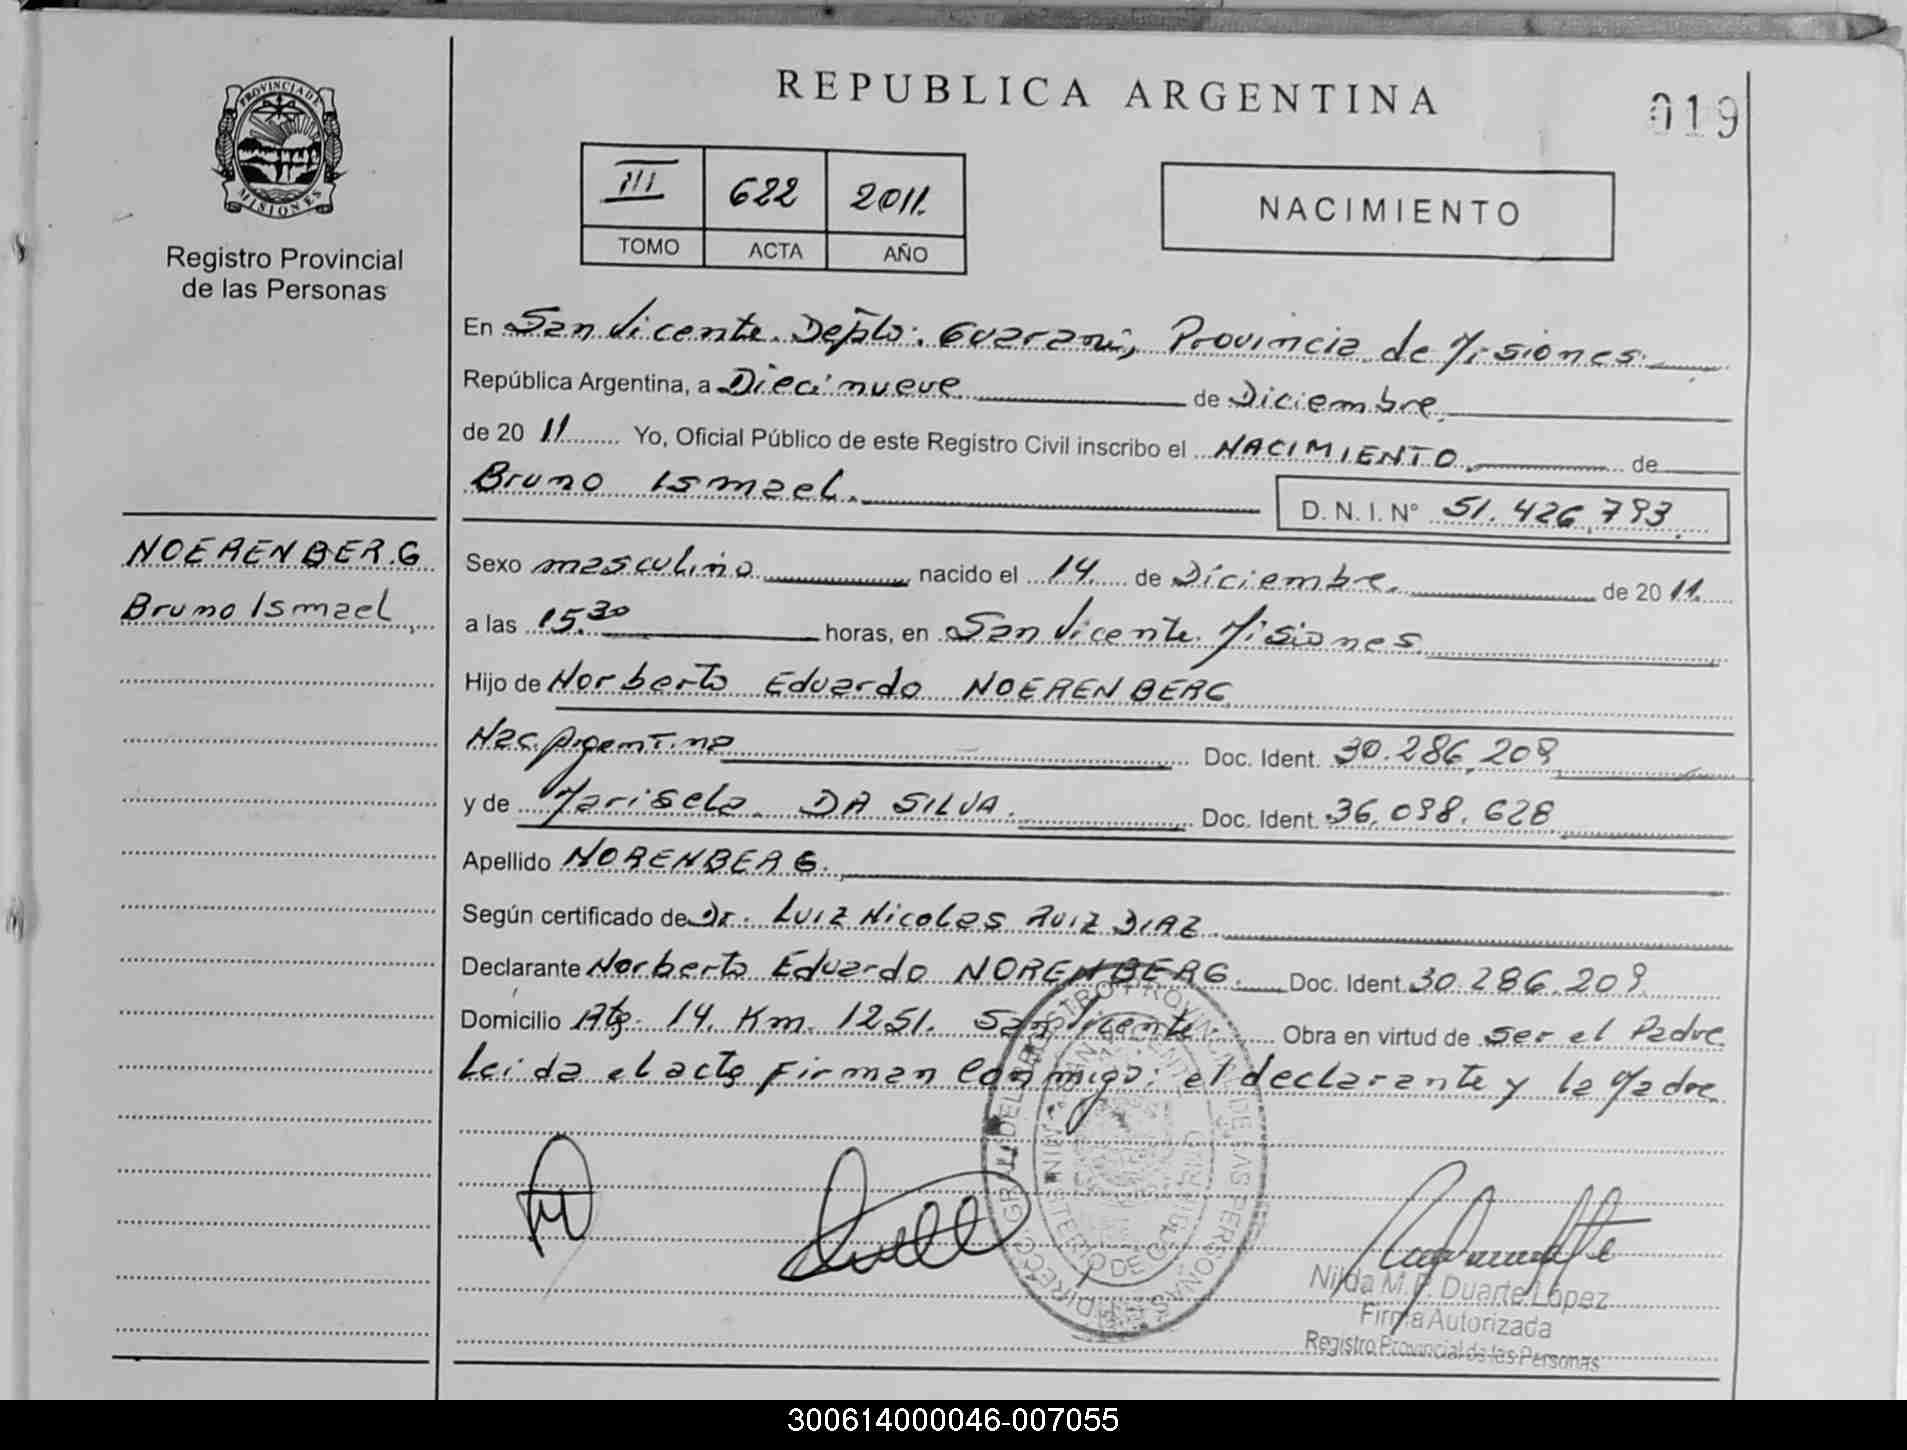 REPUBLICA ARGENTINA
019
PROVINCIA DE
MISIONES
Registro Provincial
de las Personas
III 622 2011.
TOMO ACTA AÑO
NACIMIENTO
En San Vicente. Depto: Guarani, Provincia de Misiones.
República Argentina, a Diecinueve de Diciembre.
de 20 11 Yo, Oficial Público de este Registro Civil inscribo el NACIMIENTO. de
Bruno Ismael. D. N. I. N° 51.426.793.
NOERENBERG
Bruno Ismael
Sexo masculino nacido el 14 de Diciembre. de 20 11.
a las 15.30 horas, en San Vicente. Misiones
Hijo de Norberto Eduardo NOERENBERG
Nac. Argentina Doc. Ident. 30.286.209
y de Marisela DA SILVA. Doc. Ident. 36.098.628
Apellido NORENBERG.
Según certificado de Dr. Luiz Nicolas RUIZ DIAZ.
Declarante Norberto Eduardo NORENBERG. Doc. Ident. 30.286.209
Domicilio Rta. 14. Km. 1251. San Vicente. Obra en virtud de ser el Padre
Leida el acta firman conmigo: el declarante y la Madre
Nilda M. F. Duarte López
Firma Autorizada
Registro Provincial de las Personas
300614000046-007055